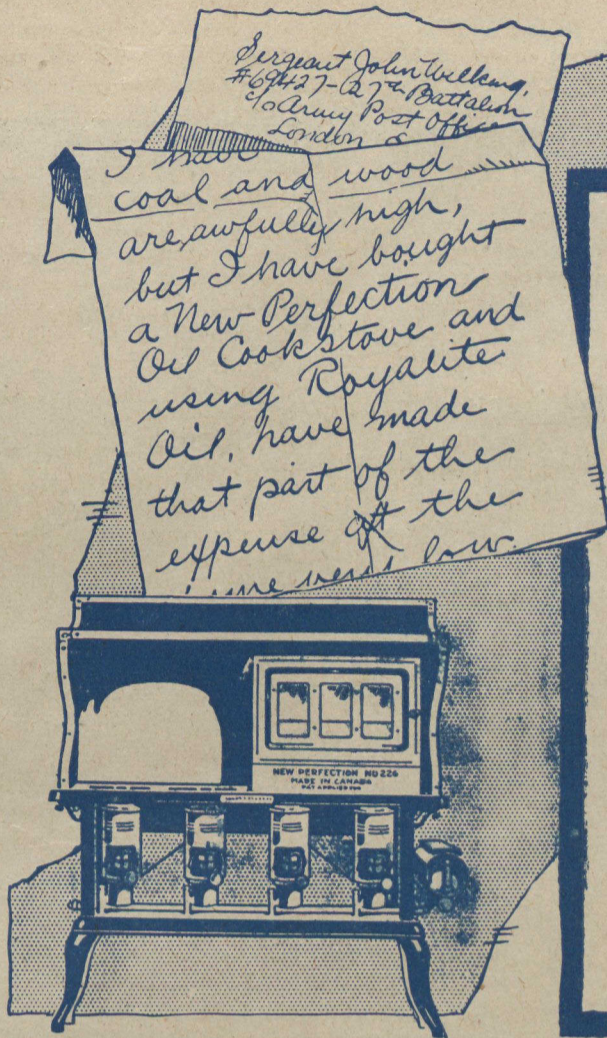 Sergeant John Wilkins,
c/o Army Post Office
London
I have
coal and wood
are awfully high,
but I have bought
a New Perfection
Oil Cookstove and
using Royalite
Oil, have made
that part of the
expense at the
very low.
NEW PERFECTION NO 226
MADE IN CANADA
PAT APPLIED FOR